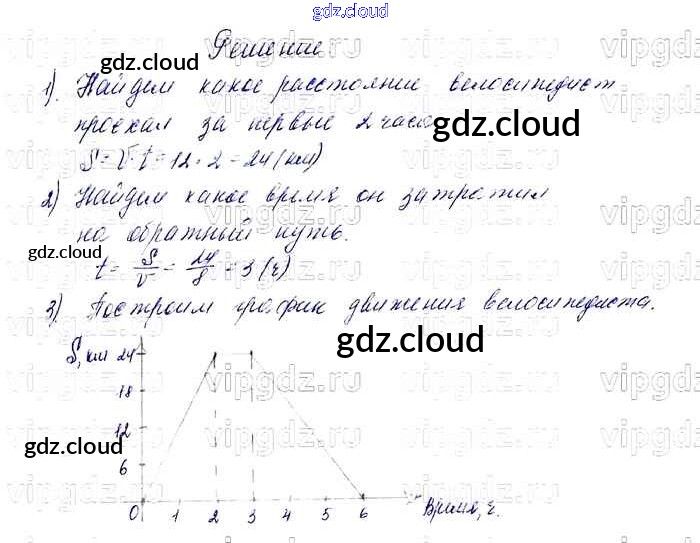 gdz.cloud
Решение
1). Найдем какое расстояние велосипедист
проехал за первые 2 часа
S = V · t = 12 · 2 = 24 (км)
2) Найдем какое время он затратил
на обратный путь.
t = S/V = 24/8 = 3 (ч)
3) Построим график движения велосипедиста.
S, км 24
18
12
6
0 1 2 3 4 5 6 Время, ч.
gdz.cloud
gdz.cloud
gdz.cloud
gdz.cloud
gdz.cloud
gdz.cloud
vipgdz.ru